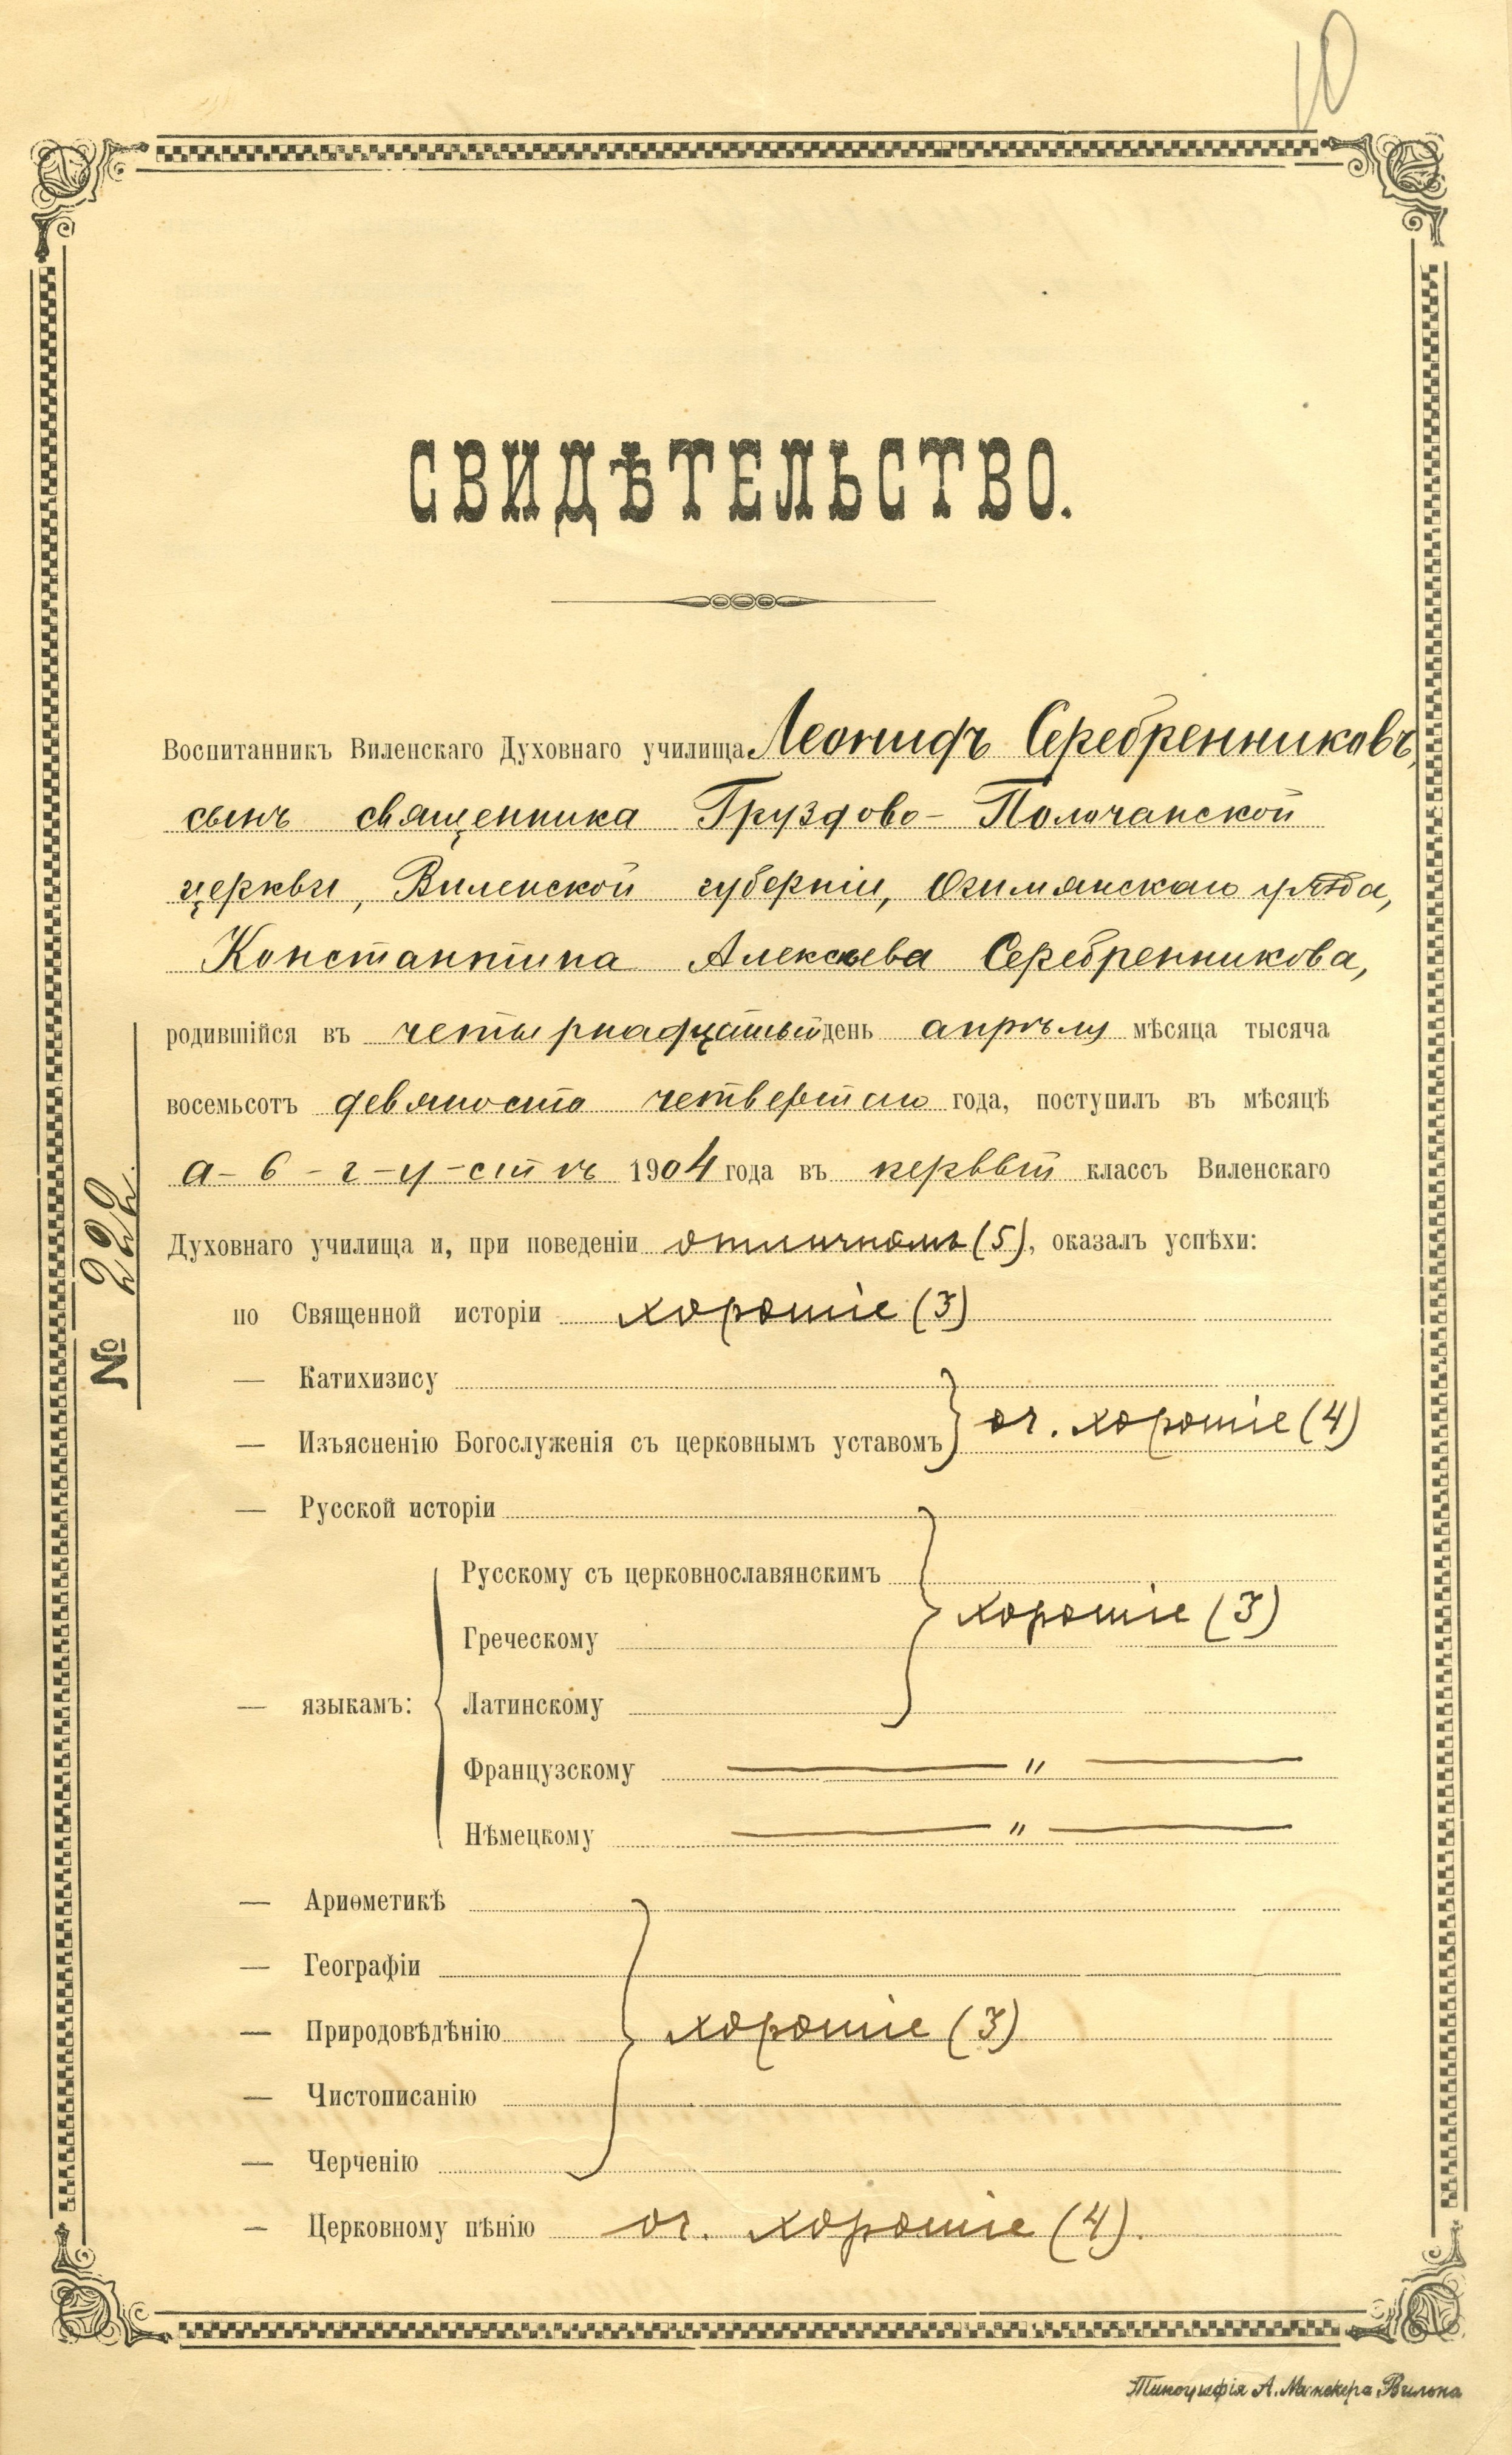 10
СВИДѢТЕЛЬСТВО.
Воспитанникъ Виленскаго Духовнаго училища Леонидъ Серебренниковъ,
сынъ священника Груздово-Полочанской
церкви, Виленской губерніи, Ошмянскаго уѣзда,
Константина Алексѣева Серебренникова,
родившійся въ четырнадцатый день апрѣля мѣсяца тысяча
восемьсотъ девяносто четвертаго года, поступилъ въ мѣсяцѣ
а-в-г-у-стѣ 1904 года въ первый классъ Виленскаго
Духовнаго училища и, при поведеніи отличномъ (5), оказалъ успѣхи:
№ 222.
по Священной исторіи хорошіе (3)
— Катихизису
— Изъясненію Богослуженія съ церковнымъ уставомъ } оч. хорошіе (4)
— Русской исторіи
Русскому съ церковнославянскимъ
Греческому } хорошіе (3)
— языкамъ: { Латинскому
Французскому — " —
Нѣмецкому — " —
— Ариѳметикѣ
— Географіи
— Природовѣдѣнію } хорошіе (3)
— Чистописанію
— Черченію
— Церковному пѣнію оч. хорошіе (4).
Типографія А. Минскера, Вильна